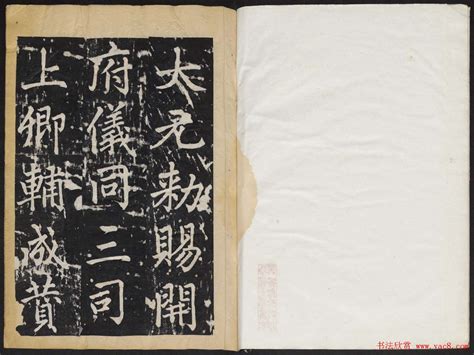 大元勑賜開
府儀同三司
上卿輔成贊
书法欣赏 www.yac8.com